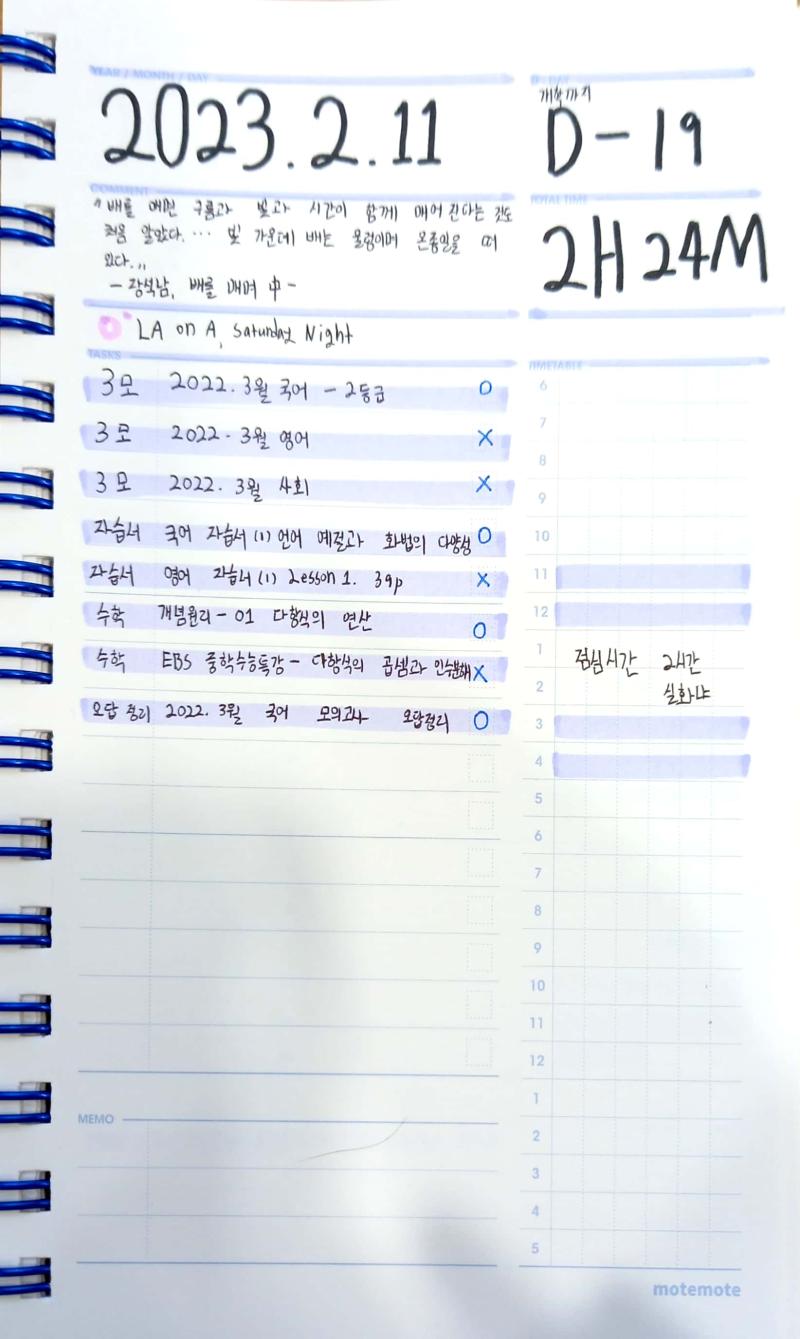 YEAR / MONTH / DAY
2023.2.11
D-DAY
개학까지
D-19
COMMENT
"배를 매면 구름과 빛과 시간이 함께 매어진다는 것도
처음 알았다. … 빛 가운데 배는 울렁이며 온종일을 떠
있다.„
- 장석남, 배를 매며 中 -
TOTAL TIME
2H 24M
LA on A, Saturday Night
TASKS
3모 2022. 3월 국어 - 2등급 O
3모 2022. 3월 영어 X
3모 2022. 3월 4회 X
자습서 국어 자습서 (1) 언어 예절과 화법의 다양성 O
자습서 영어 자습서 (1) Lesson 1. 39p X
수학 개념원리 - 01 다항식의 연산 O
수학 EBS 중학수능특강 - 다항식의 곱셈과 인수분해 X
오답 정리 2022. 3월 국어 모의고사 오답정리 O
MEMO
TIMETABLE
6
7
8
9
10
11
12
1 점심시간 2시간
2 실화냐
3
4
5
6
7
8
9
10
11
12
1
2
3
4
5
motemote